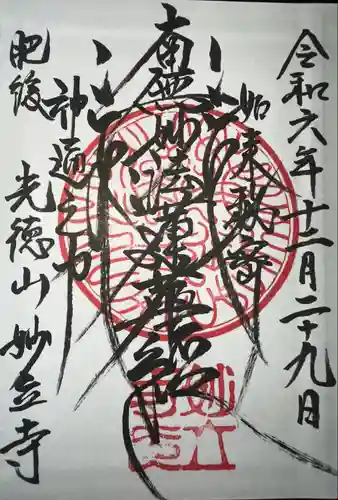 令和六年十二月二十九日
如来秘密
南無妙法蓮華経
神通之力
肥後
光徳山妙立寺